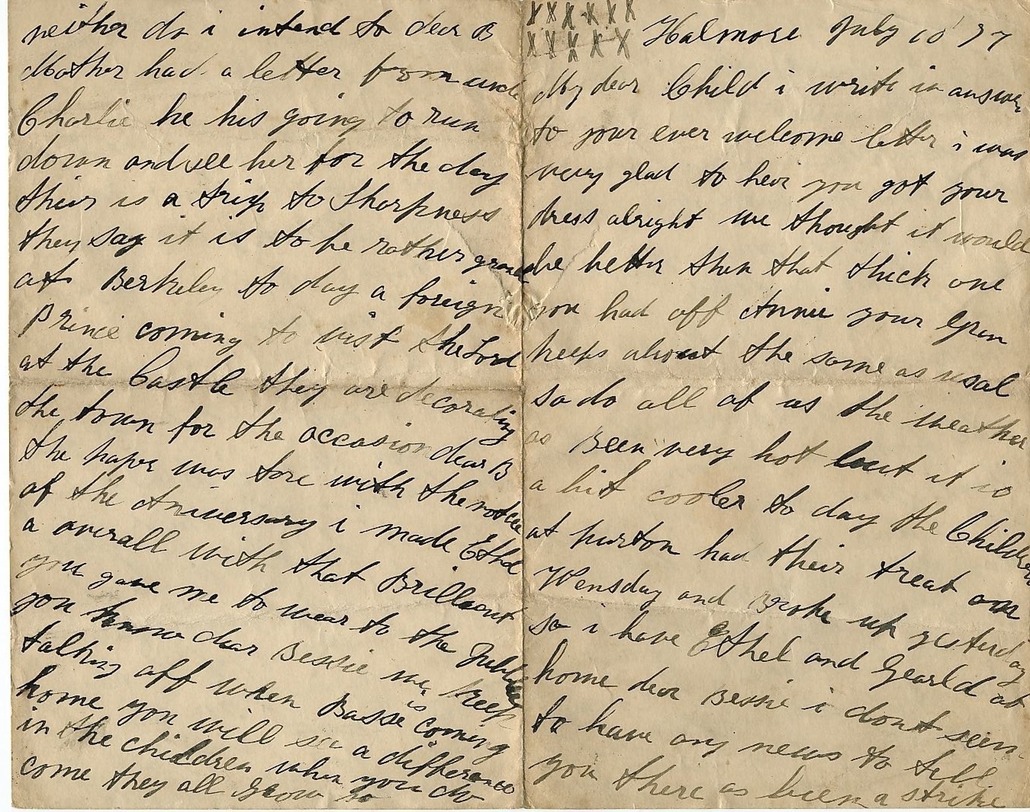 X X X X X X
X X X X X
Halmore July 10 97
My dear Child i write in answer
to your ever welcome letter i was
very glad to heir you got your
dress alright we thought it would
be better then that thick one
you had off Annie your Gran
keeps about the same as usal
so do all of us the weather
as Been very hot but it is
a bit cooler to day the Children
at purton had their treat on
Wensday and Broke up yesterday
so i have Ethel and Gearld at
home dear Bessie i dont seem
to have any news to tell
you there as been a strike
neither do i intend to dear B
Mother had a letter from uncle
Charlie he his going to run
down and see her for the day
theirs is a trip to Sharpness
they say it is to be rather grand
at Berkeley to day a foreign
Prince coming to visit the Lord
at the Castle they are decorating
the town for the occasion dear B
the paper was tore with the notice
of the Aniversary i made Ethel
a overall with that Brilleant
you gave me to wear to the Jubilee
you know dear Bessie we keep
talking off when Bassie is coming
home you will see a difference
in the children when you do
come they all grow so